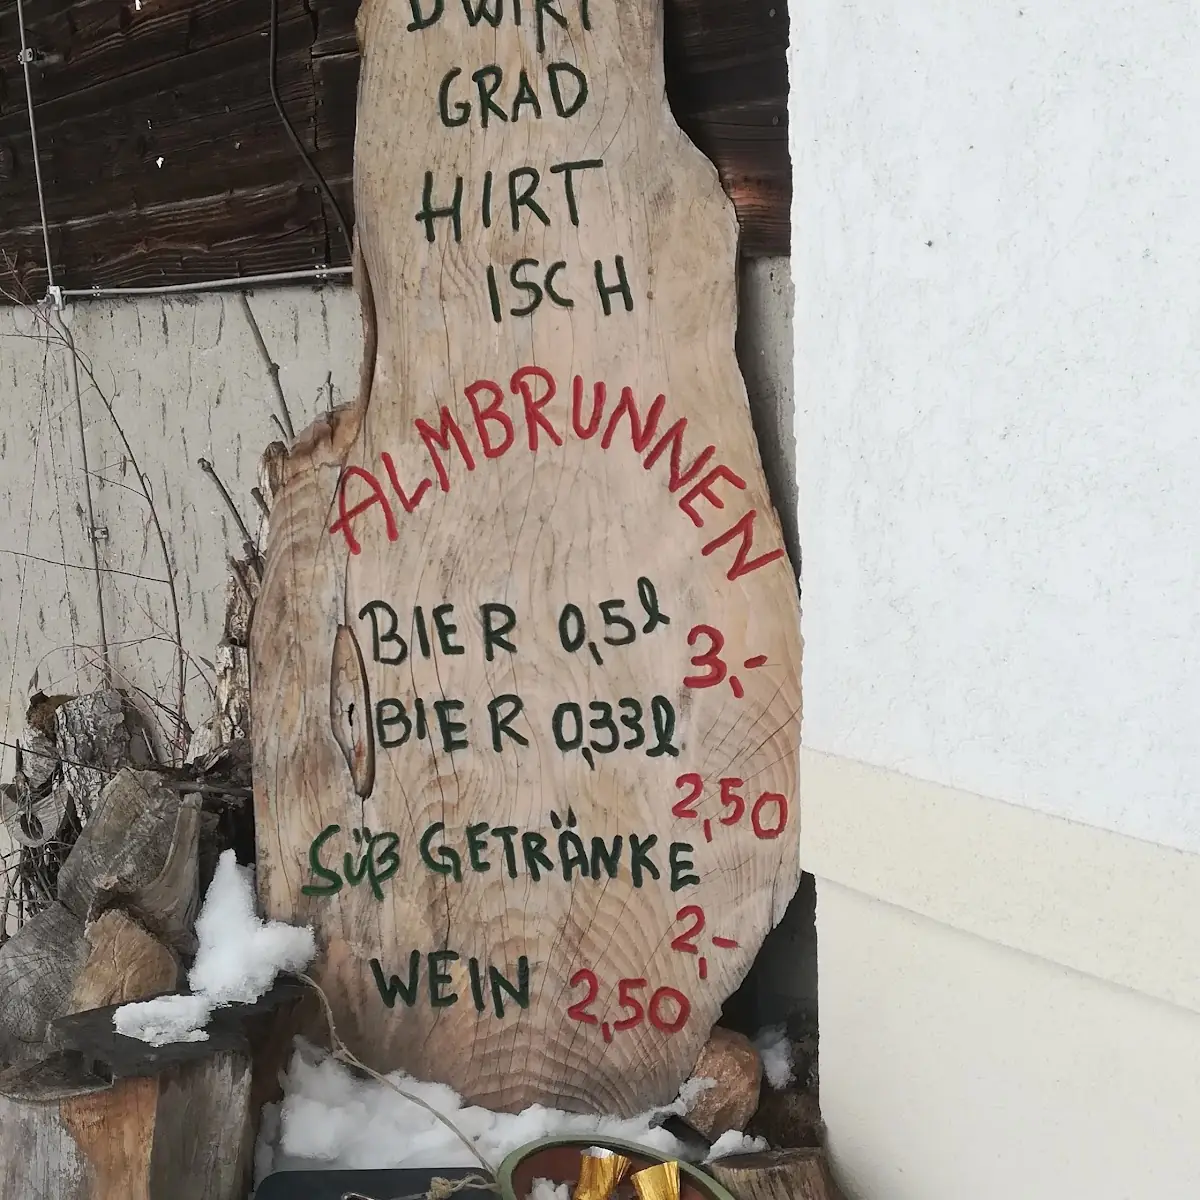 D WIRT
GRAD
HIRT
ISCH
ALMBRUNNEN
BIER 0,5l
3,-
BIER 0,33l
2,50
SÜß GETRÄNKE
2,-
WEIN 2,50